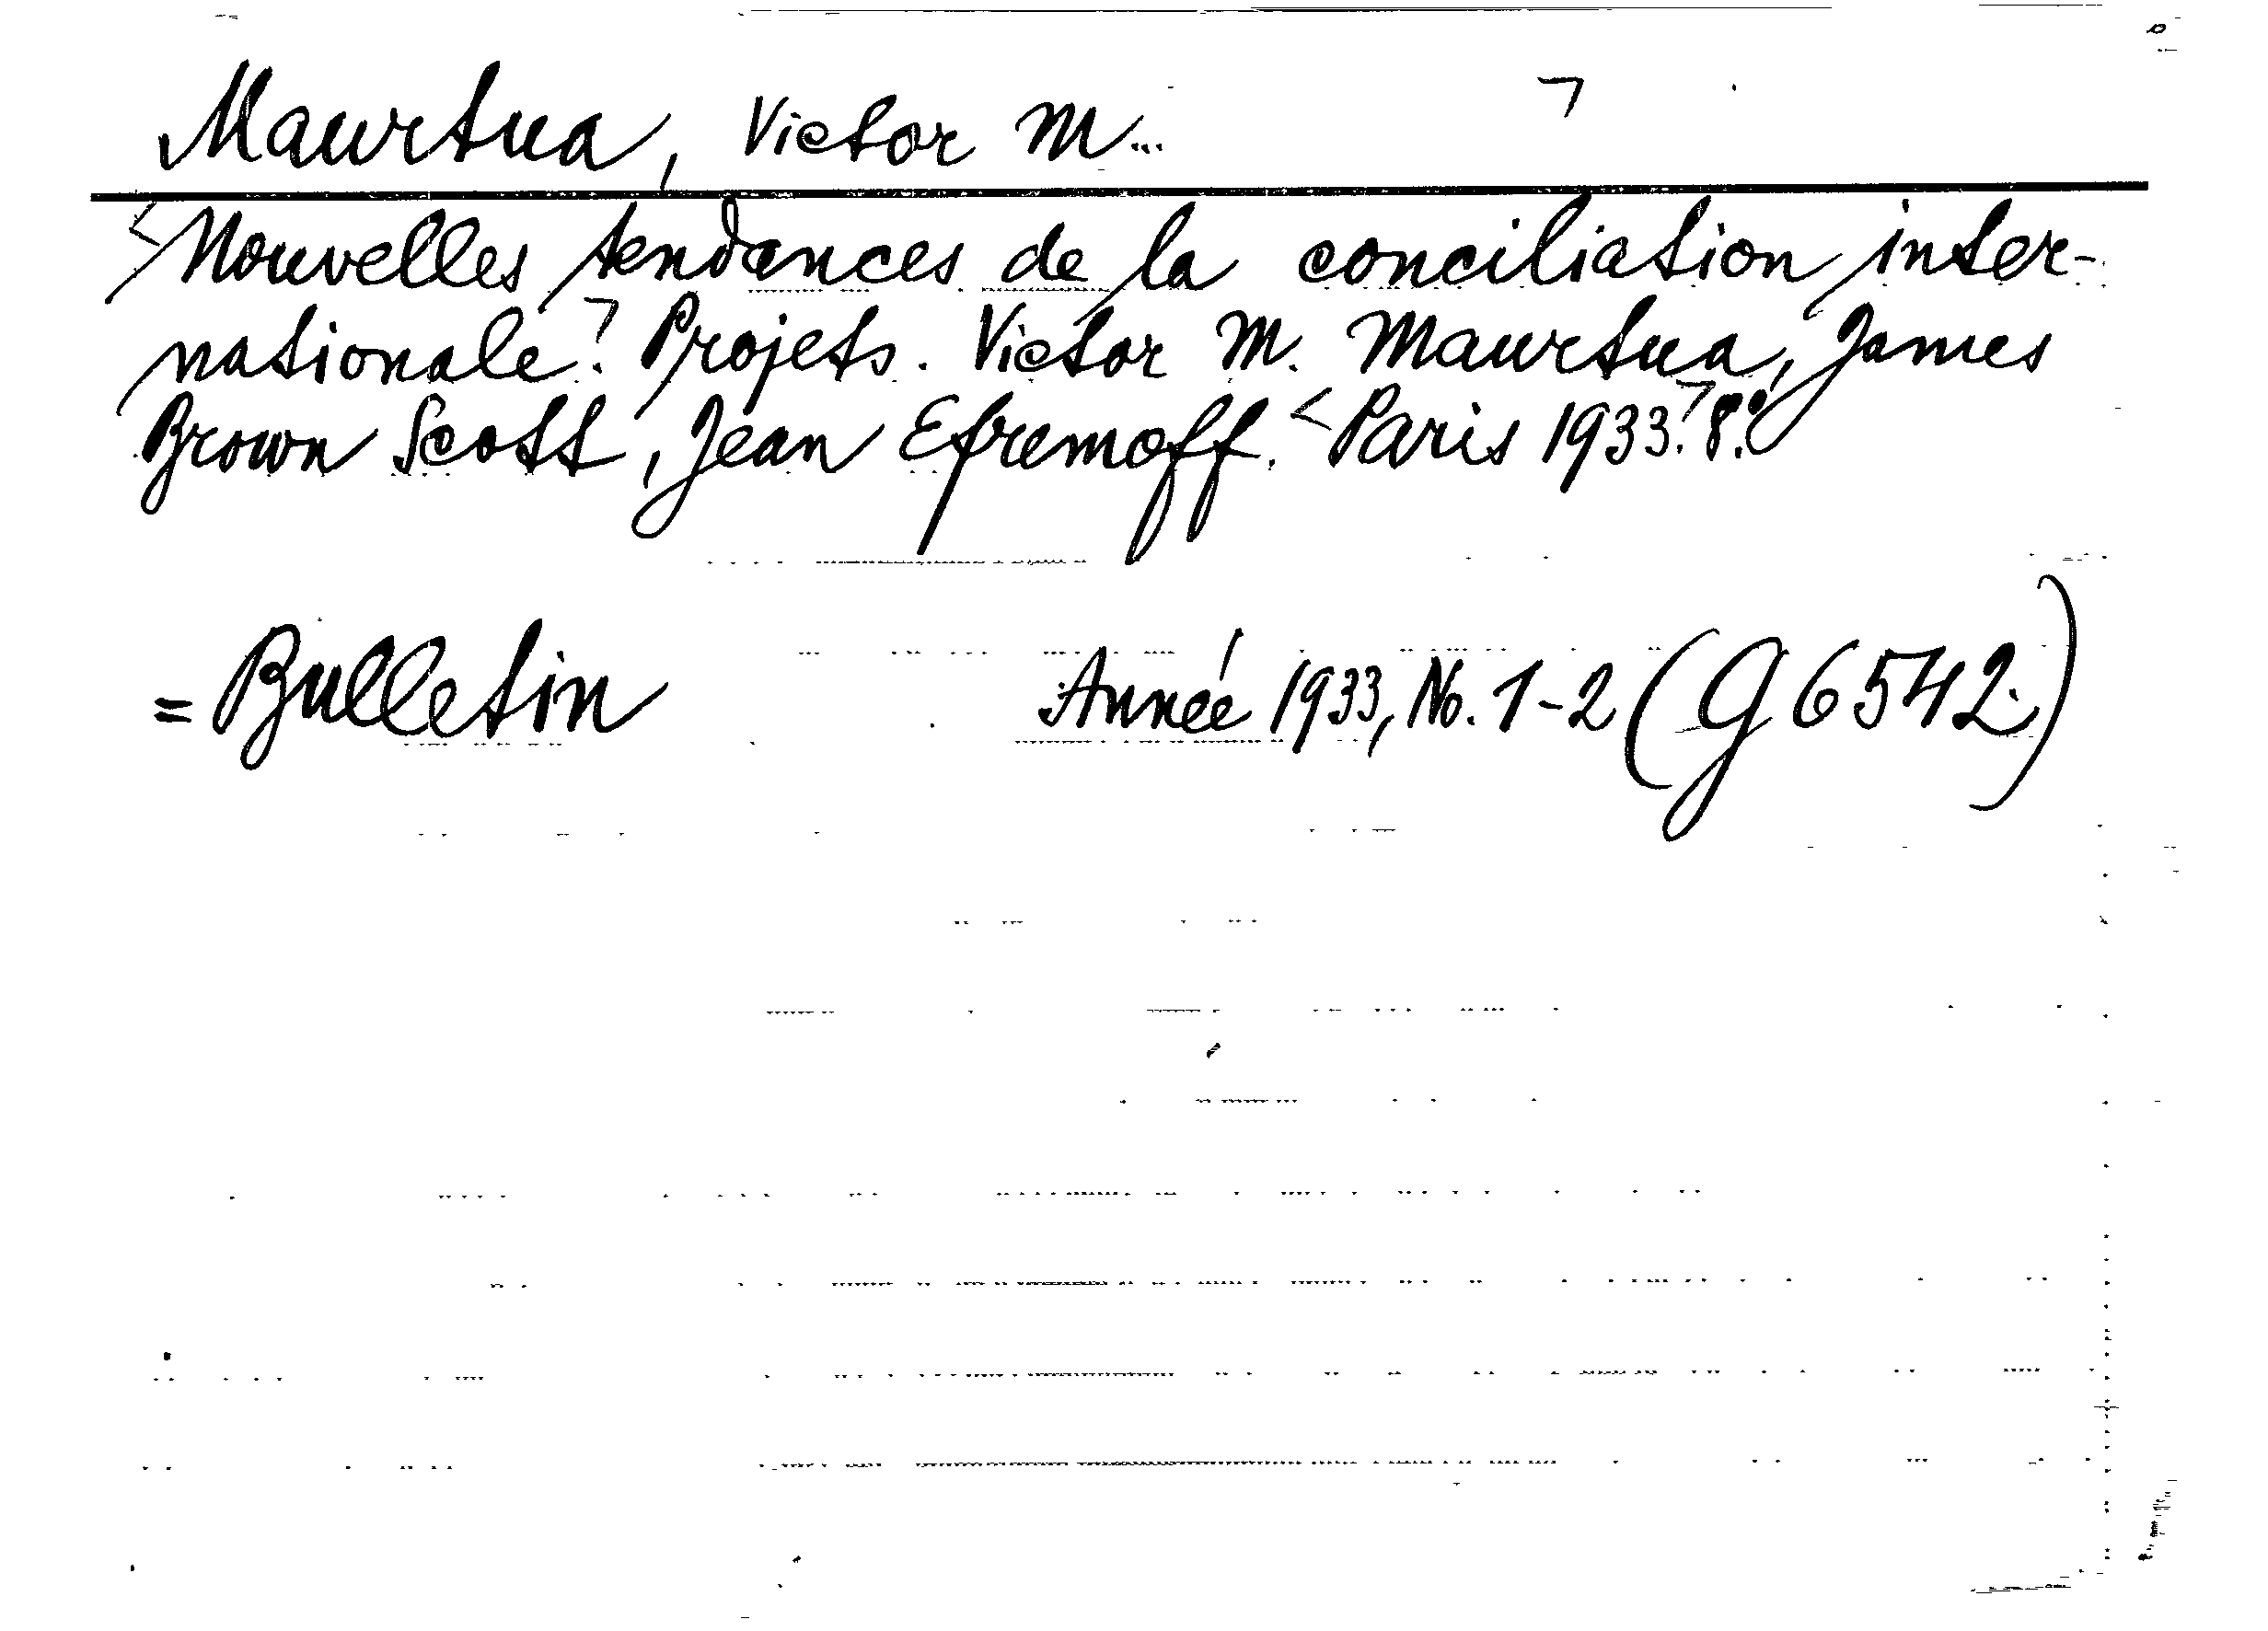 Maurtua, Victor M... ¬
<Nouvelles tendances de la conciliation inter-
nationale.¬ Projets. Victor M. Maurtua, James
Brown Scott, Jean Efremoff. <Paris 1933.¬ 8.°
= Bulletin Année 1933, No. 1-2 (G 6542)